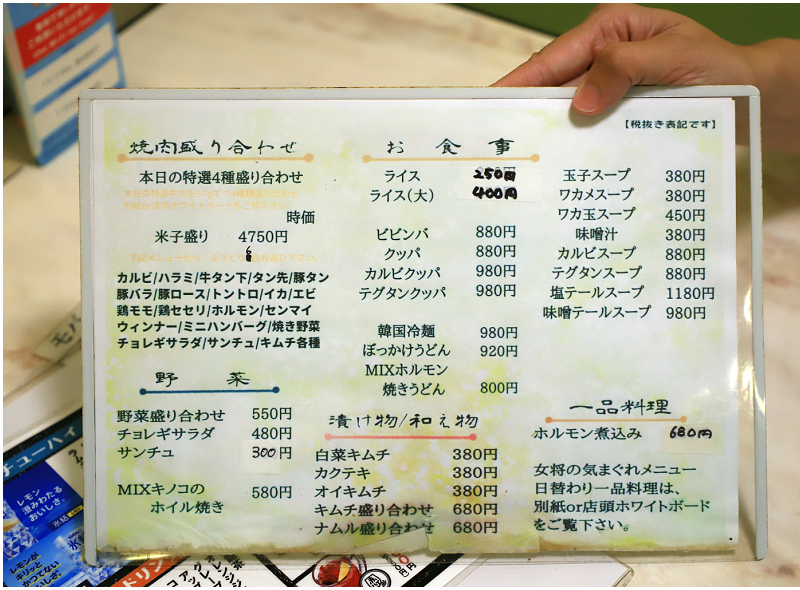 【税抜き表記です】
焼肉盛り合わせ
本日の特選4種盛り合わせ
時価
米子盛り 4750円
6
カルビ/ハラミ/牛タン下/タン先/豚タン
豚バラ/豚ロース/トントロ/イカ/エビ
鶏モモ/鶏セセリ/ホルモン/センマイ
ウィンナー/ミニハンバーグ/焼き野菜
チョレギサラダ/サンチュ/キムチ各種
野菜
野菜盛り合わせ 550円
チョレギサラダ 480円
サンチュ 300円
MIXキノコの
ホイル焼き 580円
お食事
ライス 250円
ライス(大) 400円
ビビンバ 880円
クッパ 880円
カルビクッパ 980円
テグタンクッパ 980円
韓国冷麺 980円
ぼっかけうどん 920円
MIXホルモン
焼きうどん 800円
漬け物/和え物
白菜キムチ 380円
カクテキ 380円
オイキムチ 380円
キムチ盛り合わせ 680円
ナムル盛り合わせ 680円
玉子スープ 380円
ワカメスープ 380円
ワカ玉スープ 450円
味噌汁 380円
カルビスープ 880円
テグタンスープ 880円
塩テールスープ 1180円
味噌テールスープ 980円
一品料理
ホルモン煮込み 680円
女将の気まぐれメニュー
日替わり一品料理は、
別紙or店頭ホワイトボード
をご覧下さい。
チューハイ
レモン
澄みわたる
おいしさ。
氷結
レモンが
キリッと
かつてない
おいしさ。
ドリン